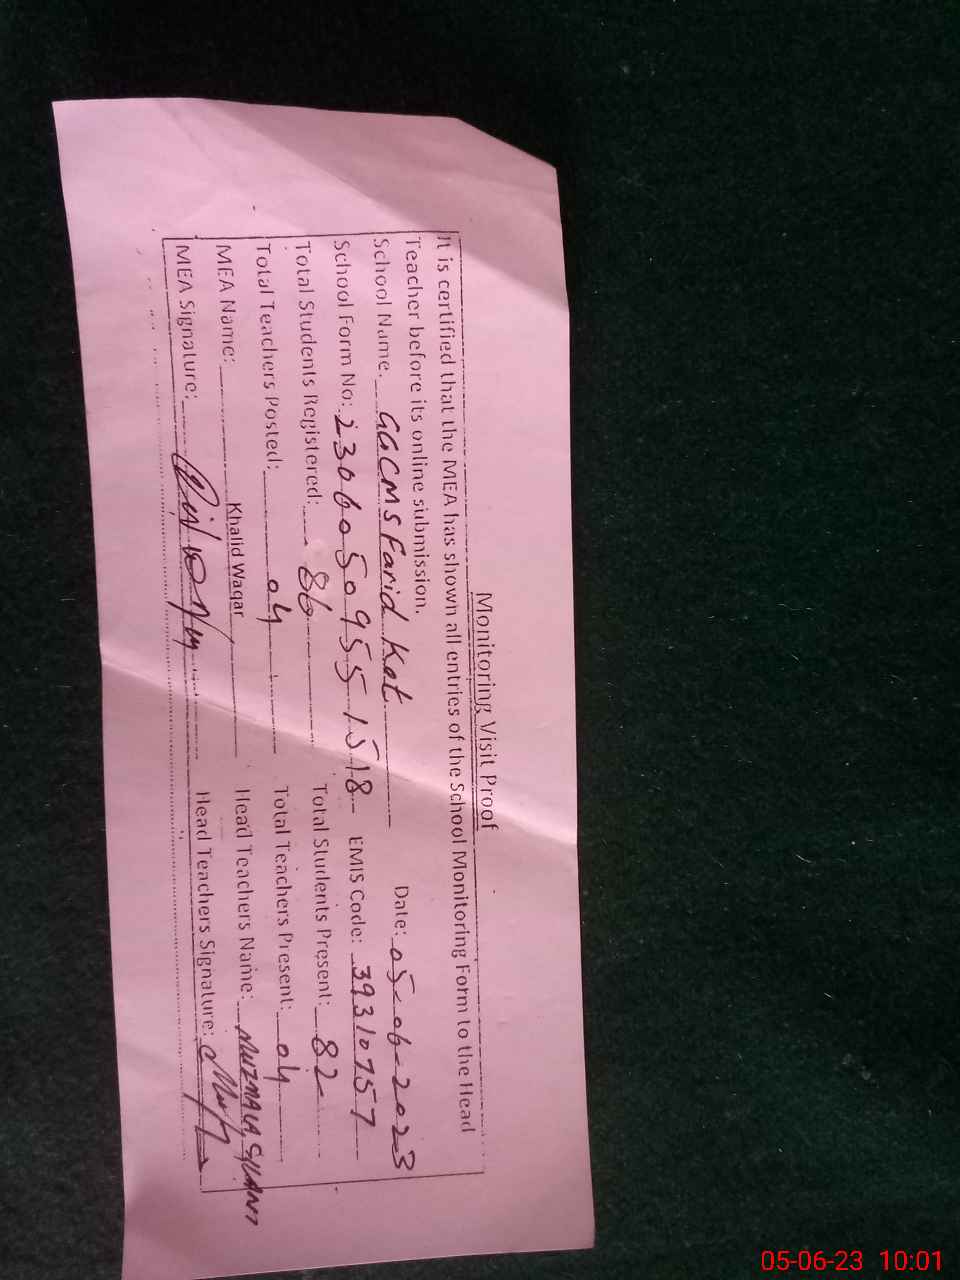 Monitoring Visit Proof
It is certified that the MEA has shown all entries of the School Monitoring Form to the Head
Teacher before its online submission.
School Name. GGCMS Farid Kot Date: 05-06-2023
School Form No: 23060509551518 EMIS Code: 39310757
Total Students Registered: 86 Total Students Present: 82
Total Teachers Posted: 04 Total Teachers Present: 04
MEA Name: Khalid Waqar Head Teachers Name:
MEA Signature: Head Teachers Signature:
05-06-23 10:01